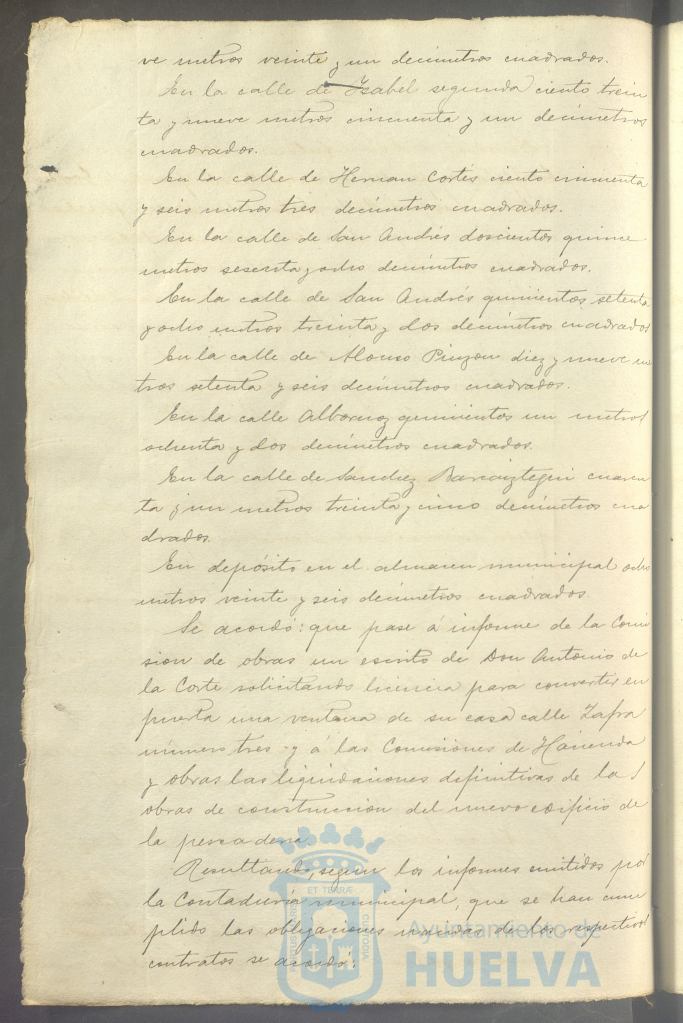 ve metros veinte y un decimetros cuadrados.
En la calle de Isabel segunda ciento trein
ta y nueve metros cincuenta y un decimetros
cuadrados.
En la calle de Hernan Cortés ciento cincuenta
y seis metros tres decimetros cuadrados.
En la calle de San Andrés doscientos quince
metros sesenta y ocho decimetros cuadrados.
En la calle de San Andrés quinientos setenta
y ocho metros treinta y dos decimetros cuadrados
En la calle de Alonso Pinzon diez y nueve me
tros setenta y seis decimetros cuadrados.
En la calle Albornoz quinientos un metros
ochenta y dos decimetros cuadrados.
En la calle de Sanchez Barcaiztegui cuaren
ta y un metros treinta y cinco decimetros cua
drados.
En depósito en el almacen municipal ocho
metros veinte y seis decimetros cuadrados
Se acordó: que pase á informe de la Comi
sion de obras un escrito de Don Antonio de
la Corte solicitando licencia para convertir en
puerta una ventana de su casa calle Zafra
número tres y á las Comisiones de Hacienda
y obras las liquidaciones definitivas de las
obras de construccion del nuevo edificio de
la pescaderia
Resultando, segun los informes emitidos por
la Contaduria municipal, que se han cum
plido las obligaciones de los respectivos
contratos se acordó:
ET TERRÆ
CUSTODIA
Ayuntamiento de
HUELVA